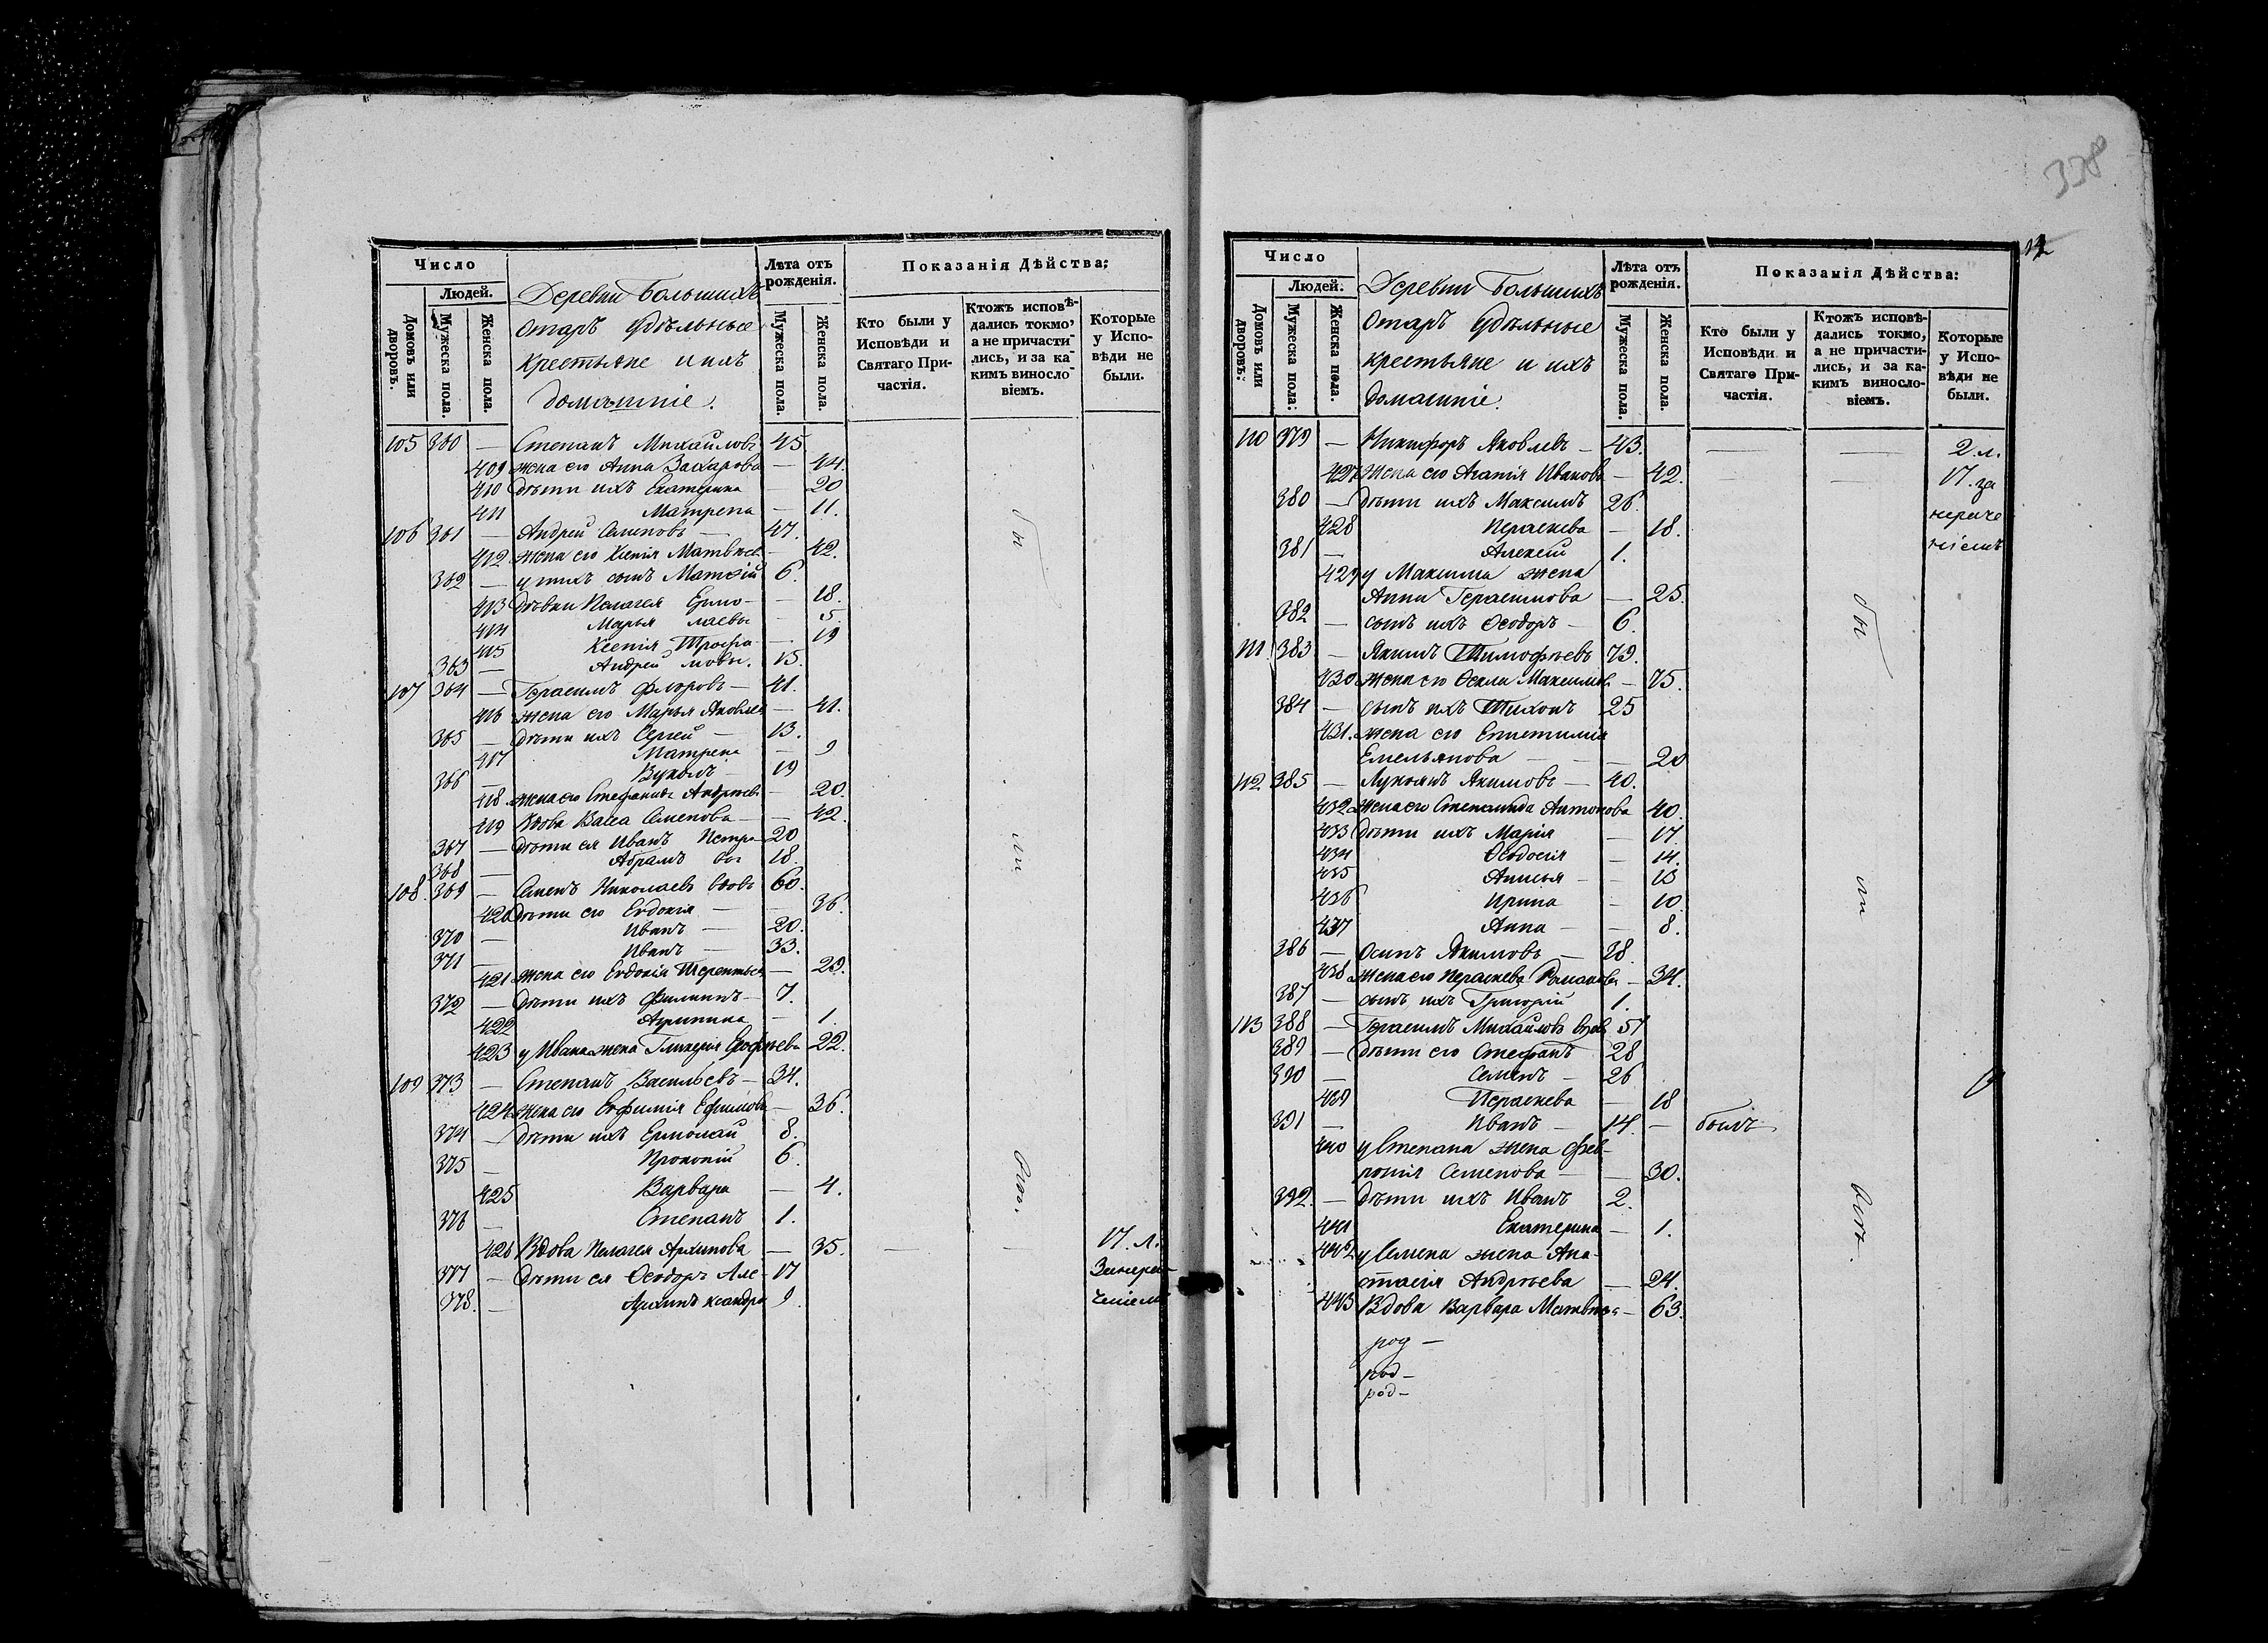 338
12
Число
Людей.
Домовъ или дворовъ.
Мужеска пола.
Женска пола.
Деревни Большихъ
Отаръ Удѣльные
крестьяне и ихъ
домашніе.
Лѣта отъ рожденія.
Мужеска пола.
Женска пола.
Показанія Дѣйства:
Кто были у Исповѣди и Святаго Причастія.
Ктожъ исповѣдались токмо, а не причастились, и за какимъ винословіемъ.
Которые у Исповѣди не были.
105 360 — Степанъ Михайловъ 45
409 жена его Анна Захарова — 44.
410 дѣти ихъ Екатерина — 20
411 Матрена — 11.
106 361 — Андрей Семеновъ — 47.
412 жена его Ксенія Матвѣев. — 42.
362 — у нихъ сынъ Матвій 6.
413 дѣвки Пелагея Ермо- — 18.
414 Марья лаевы — 5.
415 Ксенія Трофи- — 19
363 — Андрей мовы. 15.
107 364 — Герасимъ Ѳедоровъ — 41.
416 жена его Марья Яковлев — 41.
365 — дѣти ихъ Сергей — 13.
417 Матрена — 9
366 — Вуколъ — 19
418 жена его Стефанида Андреев — 20.
419 Вдова Васса Семенова — — 42.
367 — дѣти ея Иванъ Петро- 20
368 — Абрамъ вы 18.
108. 369 — Семенъ Николаевъ вдовъ 60.
420 дѣти его Евдокія — — 36.
370 — Иванъ — 20.
371 — Иванъ — 33.
421 жена его Евдокія Терентьев — 29.
372 — дѣти ихъ Филиппъ — 7.
422 Агрипина — 1.
423 у Ивана жена Гликерія Ерофѣева 22.
109 373 — Степанъ Васильевъ — 34.
424 жена его Евфимія Ефимова — 36.
374 — дѣти ихъ Ермолай 8.
375 — Прокопій 6.
425 Варвара — 4.
376 — Степанъ 1.
426 Вдова Пелагея Архипова — 35. — — 17. л.
377 — дѣти ея Ѳеодоръ Але- 17 За нера-
378. — Архипъ ксандро 9. ченіемъ
бы
ли
Число
Людей.
Домовъ или дворовъ.
Мужеска пола.
Женска пола.
Деревни Большихъ
Отаръ Удѣльные
крестьяне и ихъ
домашніе.
Лѣта отъ рожденія.
Мужеска пола.
Женска пола.
Показанія Дѣйства:
Кто были у Исповѣди и Святаго Причастія.
Ктожъ исповѣдались токмо, а не причастились, и за какимъ винословіемъ.
Которые у Исповѣди не были.
110 379 — Никифоръ Яковлевъ — 43. — — 2. л.
427 жена его Агапія Иванова — 42. — — 17. за
380 — дѣти ихъ Максимъ 26. нераче
428 Параскева — 18. ніемъ
381 — Алексій 1.
429 у Максима жена
Анна Герасимова — 25.
382 — сынъ ихъ Ѳеодоръ — 6.
111. 383 — Якимъ Тимофѣевъ 79.
430 жена его Ѳекла Максимов — 75.
384 — сынъ ихъ Тихонъ 25
431. жена его Епистимія
Емельянова — — 20
112 385 — Лукьянъ Якимовъ — 40.
432 жена его Степанида Антонова 40.
433 дѣти ихъ Марія — 17.
434 Ѳеодосія — 14.
435 Анисья — 13
436 Ирина — 10.
437 Анна — 8.
386 — Осипъ Якимовъ — 38.
438 жена его Параскева Романова — 34.
387 — сынъ ихъ Григорій 1.
113 388 — Герасимъ Михайловъ вдов. 57
389 — дѣти его Стефанъ 28
390 — Семенъ — 26
439 Параскева — 18
391 — Иванъ — 14. — былъ
440 у Степана жена Фев-
ронія Семенова — — 30.
392. — дѣти ихъ Иванъ 2.
441 Екатерина — 1.
442 у Семена жена Ана-
стасія Андрѣева — 24.
443 Вдова Варвара Матвѣев — 63.
род —
род —
род —
бы
ли